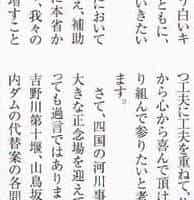 り白いキ
ともに、
いきたい
において
え、補助
に本省か
、我々の
増すこと
つ工夫に工夫を重ねて、
から心から喜んで頂け
り組んで参りたいと考
ます。
さて、四国の河川事
大きな正念場を迎えて
っても過言ではありま
吉野川第十堰、山鳥坂
内ダムの代替案の各問